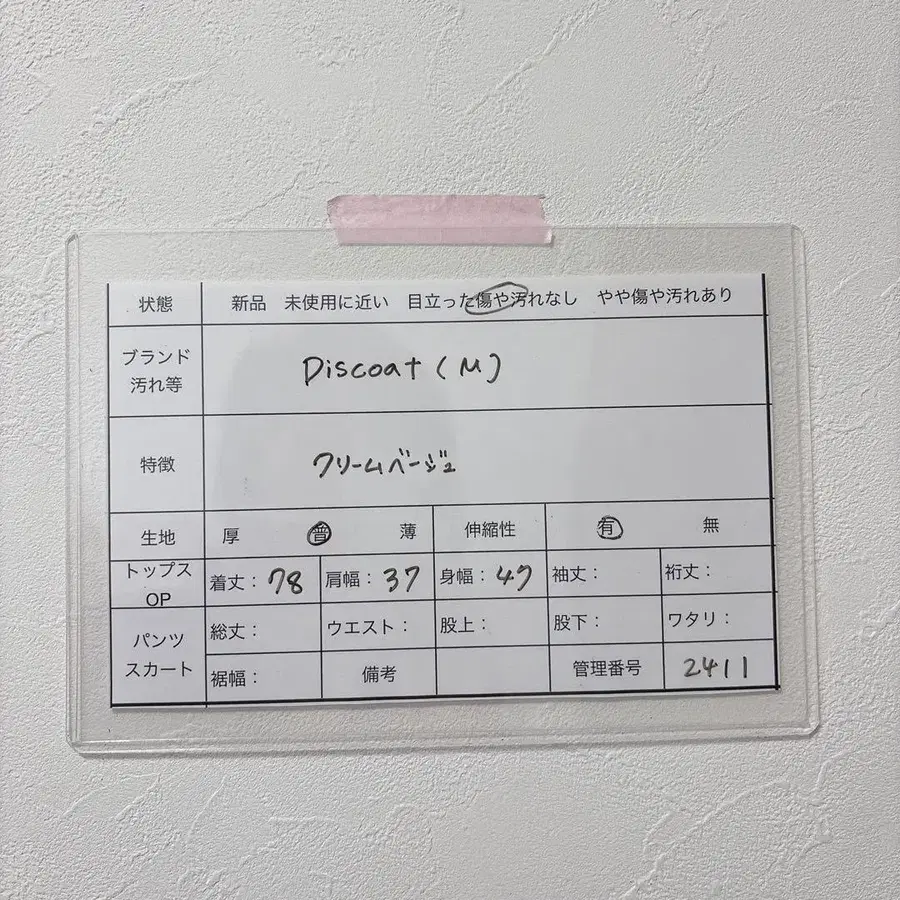 状態 新品 未使用に近い 目立った傷や汚れなし やや傷や汚れあり
ブランド
汚れ等
Discoat (M)
特徴 クリームベージュ
生地 厚 普 薄 伸縮性 有 無
トップス
OP
着丈: 78 肩幅: 37 身幅: 47 袖丈: 裄丈:
パンツ
スカート
総丈: ウエスト: 股上: 股下: ワタリ:
裾幅: 備考 管理番号 2411